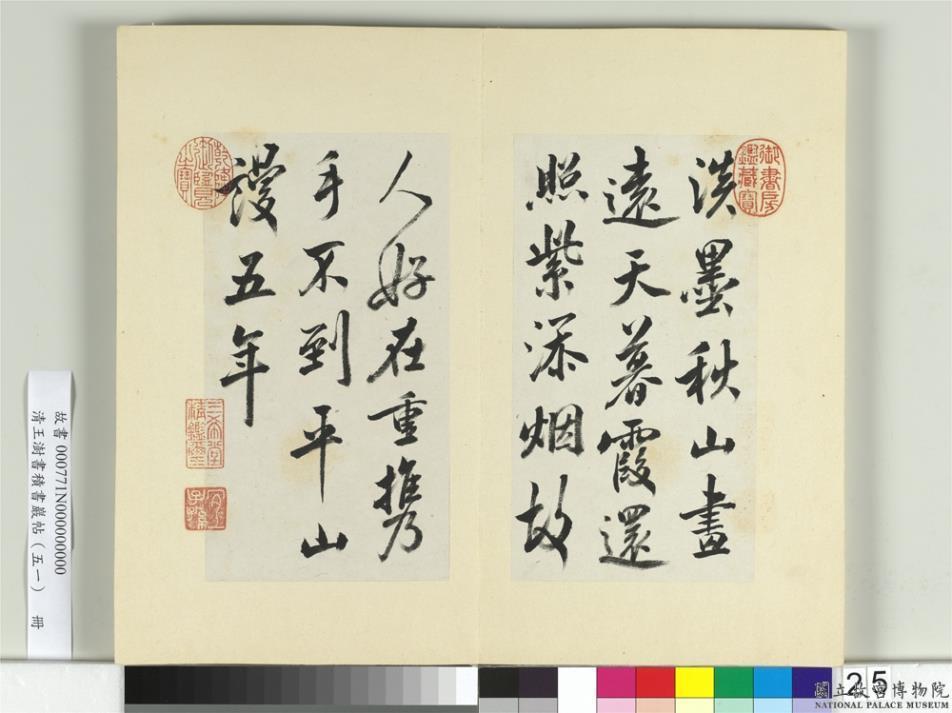 淡墨秋山畫
遠天暮霞還
照紫添烟故
人好在重携
手不到平山
謾五年
御書房
鑑藏寶
乾隆
御覽
之寶
三希堂
精鑑璽
宜
子孫
故書 000771N000000000
清王澍書積書巖帖(五一) 冊
25
國立故宮博物院
NATIONAL PALACE MUSEUM